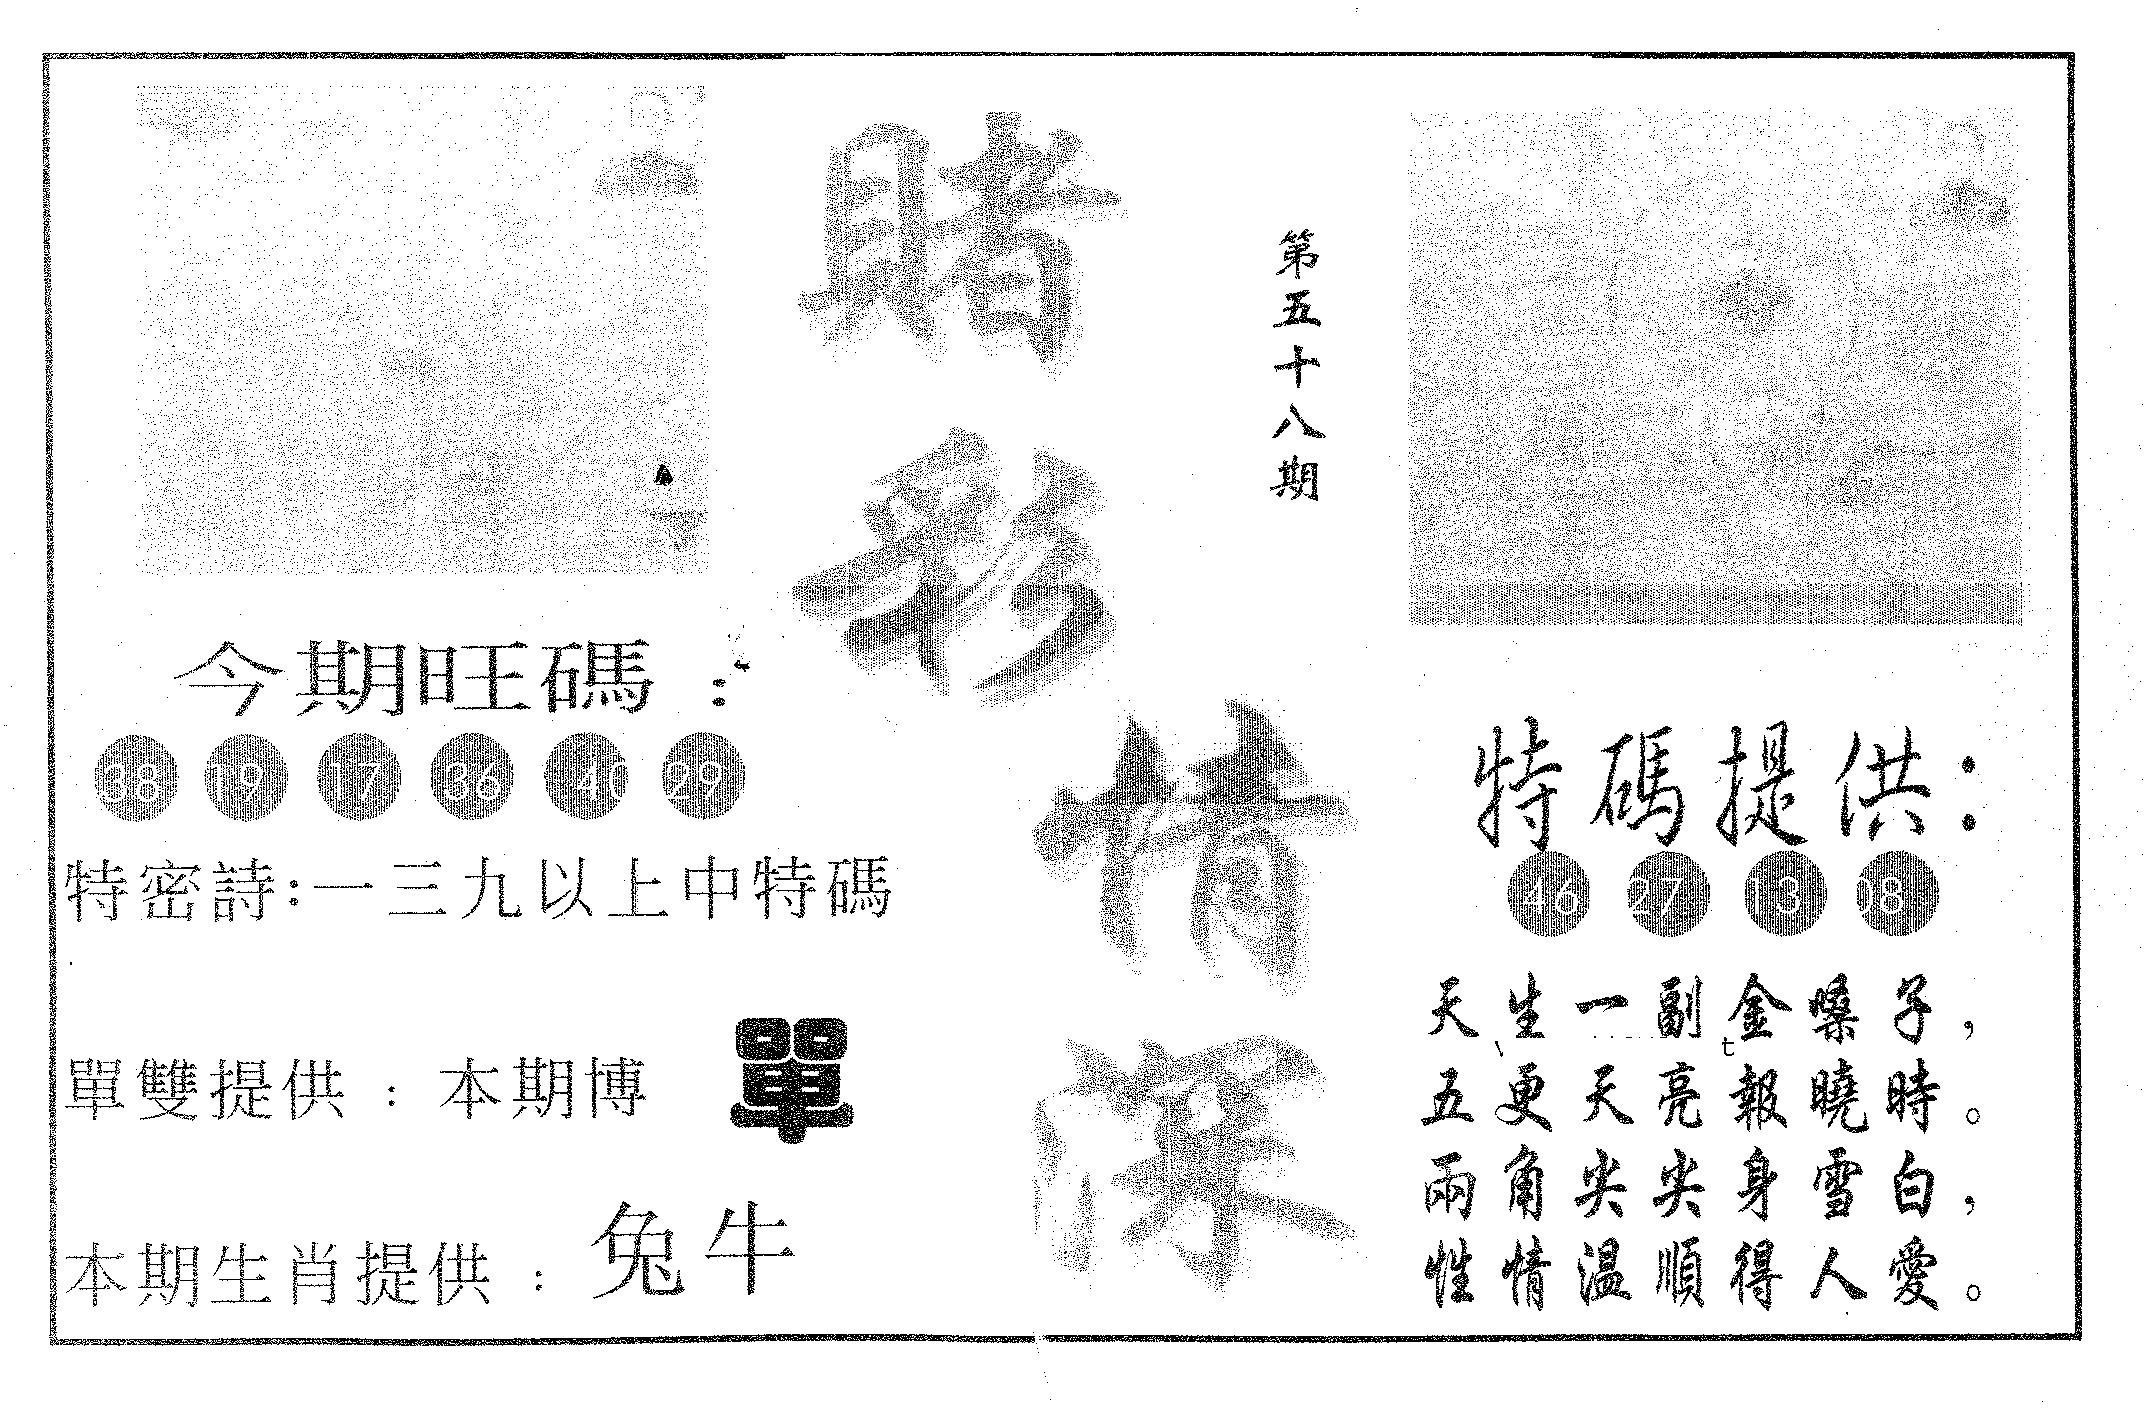 賭彩情深
第五十八期
今期旺碼：
38 19 17 36 40 29
特密詩:一三九以上中特碼
單雙提供：本期博 單
本期生肖提供：兔牛
特碼提供：
46 27 13 08
天生一副金嗓子，
五更天亮報曉時。
兩角尖尖身雪白，
性情溫順得人愛。